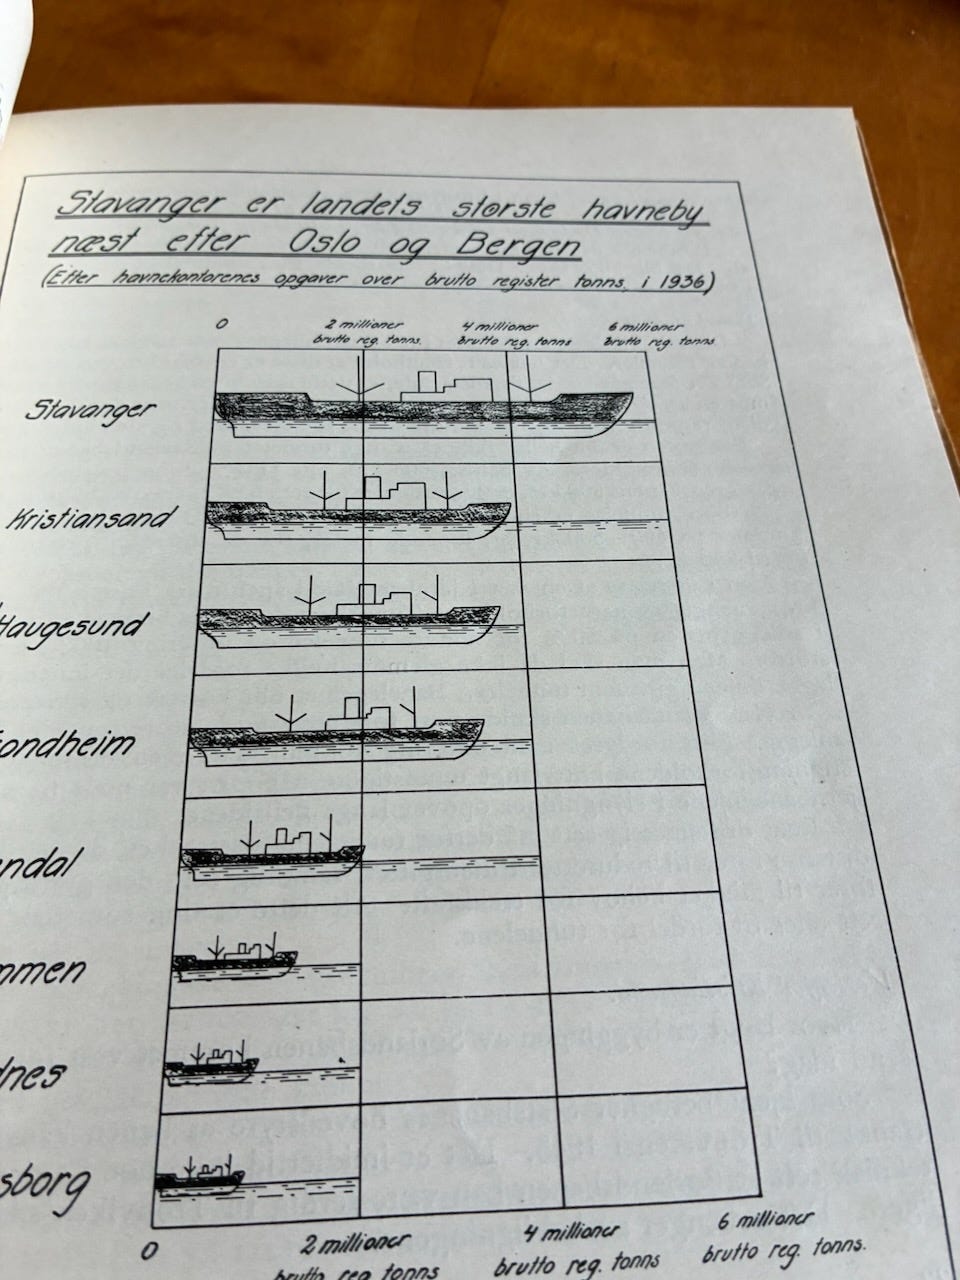 Stavanger er landets største havneby
næst efter Oslo og Bergen
(Efter havnekontorenes opgaver over brutto register tonns, i 1936)
0 2 millioner 4 millioner 6 millioner
brutto reg. tonns. brutto reg. tonns brutto reg. tonns.
Stavanger
Kristiansand
Haugesund
ondheim
ndal
mmen
dnes
sborg
0 2 millioner 4 millioner 6 millioner
brutto reg. tonns brutto reg. tonns. brutto reg. tonns.